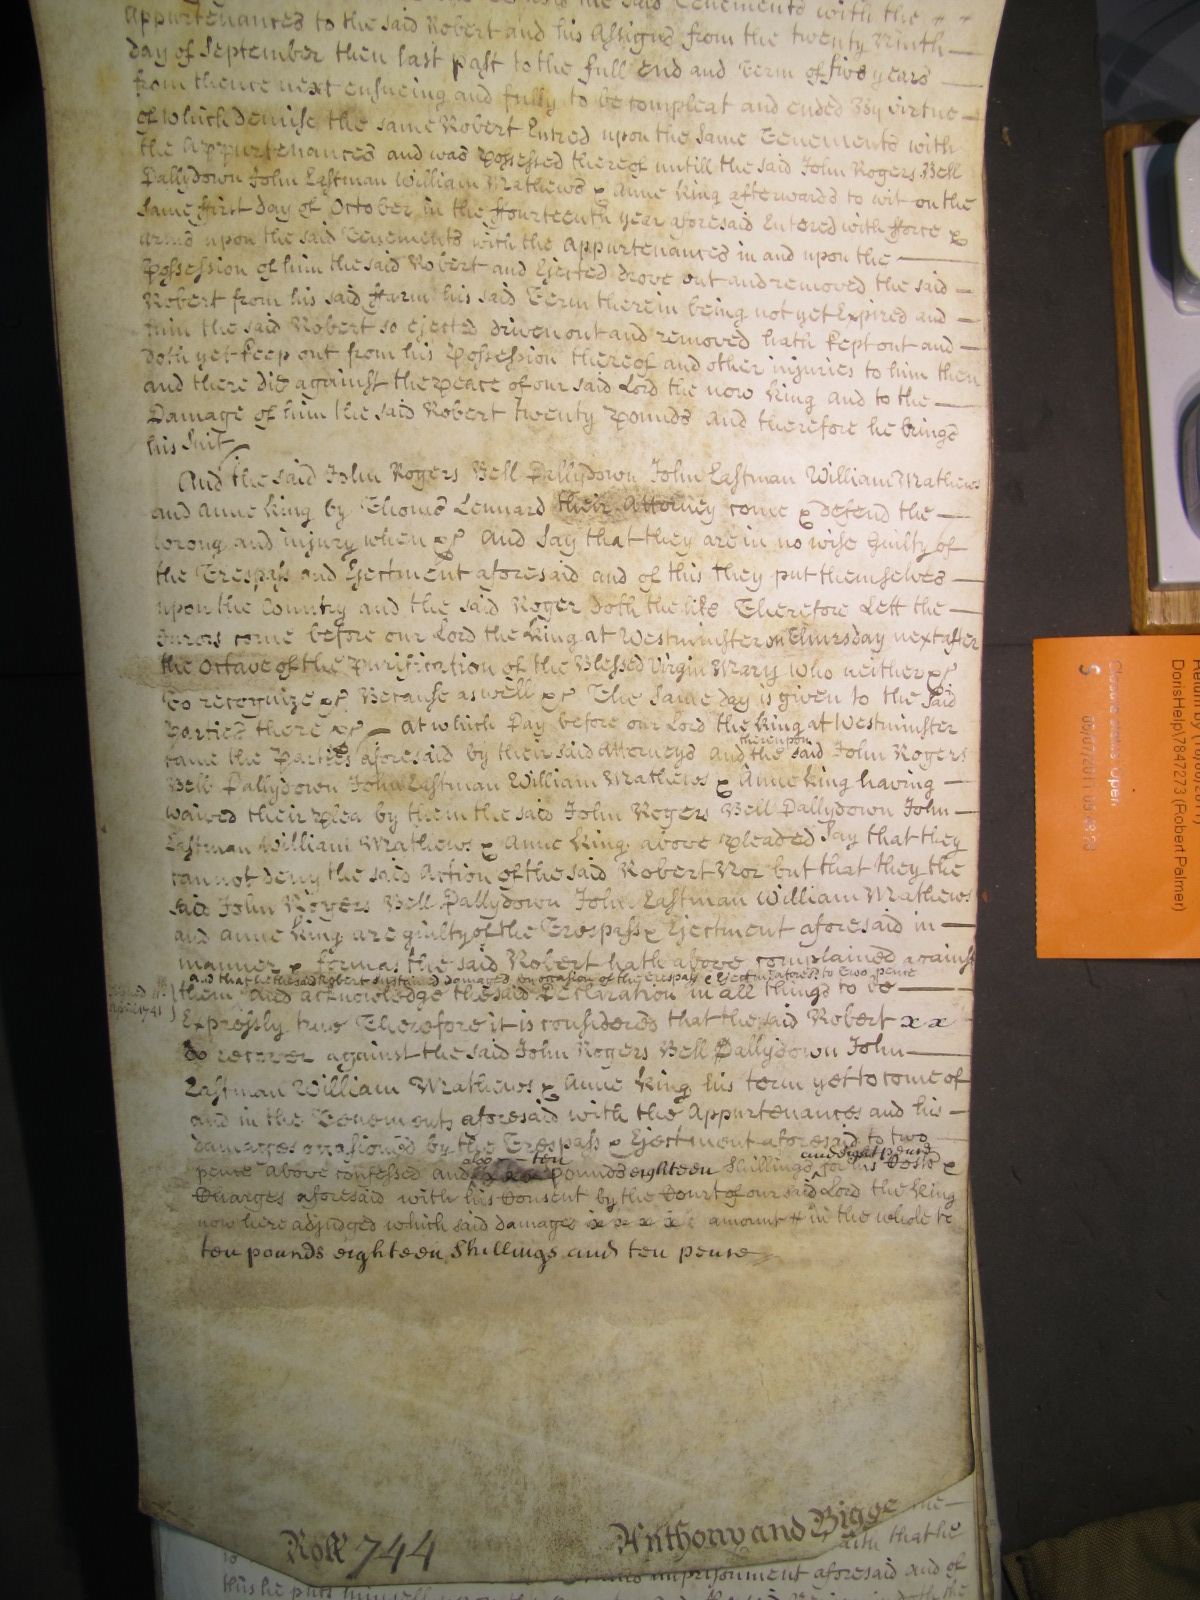 said Tenements with the
Appurtenances to the said Robert and his Assigns from the twenty Ninth
day of September then last past to the full end and Term of five years
from thence next ensueing and fully to be compleat and ended By virtue
of which demise the same Robert Entred upon the same Tenements with
the Appurtenances and was Possessed thereof untill the said John Rogers Bell
Dallydown John Eastman William Mathews & Anne King afterwards to wit on the
same ffirst day of October in the ffourteenth year aforesaid Entered with fforce &
arms upon the said Tenements with the Appurtenances in and upon the
Possession of him the said Robert and Ejected drove out and removed the said
Robert from his said ffarm his said Term therein being not yet Expired and
him the said Robert so ejected driven out and removed hath kept out and
doth yet keep out from his Possession thereof and other injuries to him then
and there did against the peace of our said Lord the now King and to the
Damage of him the said Robert twenty pounds and therefore he brings
his Suit
And the said John Rogers Bell Dallydown John Eastman William Mathews
and Anne King by Thomas Lennard their Attorney come & defend the
wrong and injury when &c And Say that they are in no wise Guilty of
the Trespass and Ejectment aforesaid and of this they put themselves
upon the Country and the said Roger doth the like Therefore Lett the
Jurors come before our Lord the King at Westminster on Thursday next after
the Octave of the Purification of the Blessed Virgin Mary who neither &c
To recognize &c Because as well &c The same day is given to the said
Parties there &c At which Day before our Lord the King at Westminster
came the Parties aforesaid by their said Attorneys and thereupon the said John Rogers
Bell Dallydown John Eastman William Mathews & Anne King having
waived their plea by them the said John Rogers Bell Dallydown John
Eastman William Mathews & Anne King above pleaded Say that they
cannot deny the said Action of the said Robert Nor but that they the
said John Rogers Bell Dallydown John Eastman William Mathews
and Anne King are guilty of the Trespass & Ejectment aforesaid in
manner & form as the said Robert hath above complained against
and that the said Robert sustained Damages on occasion of the Trespass & Ejectment aforesd. to two pence
them and acknowledge the said Declaration in all things to be
Expressly true Therefore it is considered that the said Robert x x
do recover against the said John Rogers Bell Dallydown John
Eastman William Mathews & Anne King his term yet to come of
and in the Tenements aforesaid with the Appurtenances and his
damages occasioned by the Trespass & Ejectment aforesaid to two
pence above confessed and also ten pounds eighteen Shillings and eight pence for his Costs &
Charges aforesaid with his Consent by the Court of our said Lord the King
now here adjudged which said damages x x x x amount in the whole to
ten pounds eighteen Shillings and ten pence
April 1741
Roll 744
Anthony and Bigge
with that he
imprisonment aforesaid and of
this he puts himself
DorisHelp\7847273 (Robert Palmer)
S